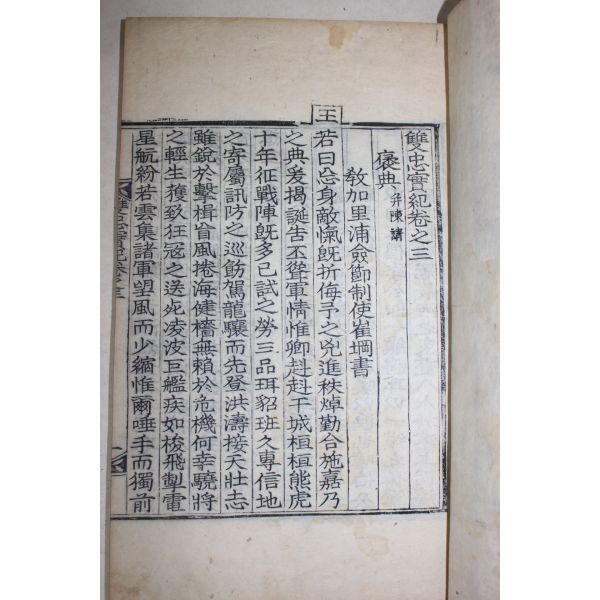 雙忠實紀卷之三
褒典 并陳請
敎加里浦僉節制使崔堈書
王
若曰忘身敵愾旣折侮予之兇進秩焯勤合施嘉乃
之典爰揭誕告丕聳軍情惟卿赳赳干城桓桓熊虎
十年征戰陣旣多已試之勞三品珥貂班久專信地
之寄屬訊防之巡飭駕龍驤而先登洪濤接天壯志
雖銳於擊楫盲風捲海健檣無賴於危機何幸驍將
之輕生擭致狂寇之送死凌波巨艦疾如梭飛掣電
星航紛若雲集諸軍望風而少縮惟爾唾手而獨前
雙忠實紀卷之三